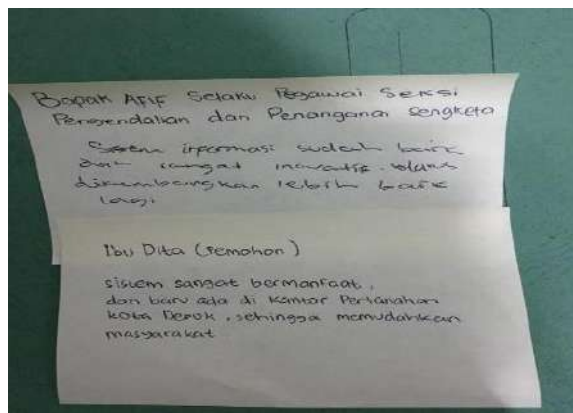 Bapak AFIF Selaku Pegawai Seksi
Pengendalian dan Penanganan Sengketa
Sistem informasi sudah baik
dan sangat inovatif.
dikembangkan lebih baik
lagi
Ibu Dita (Pemohon)
sistem sangat bermanfaat,
dan baru ada di Kantor Pertanahan
Kota Depok, sehingga memudahkan
masyarakat